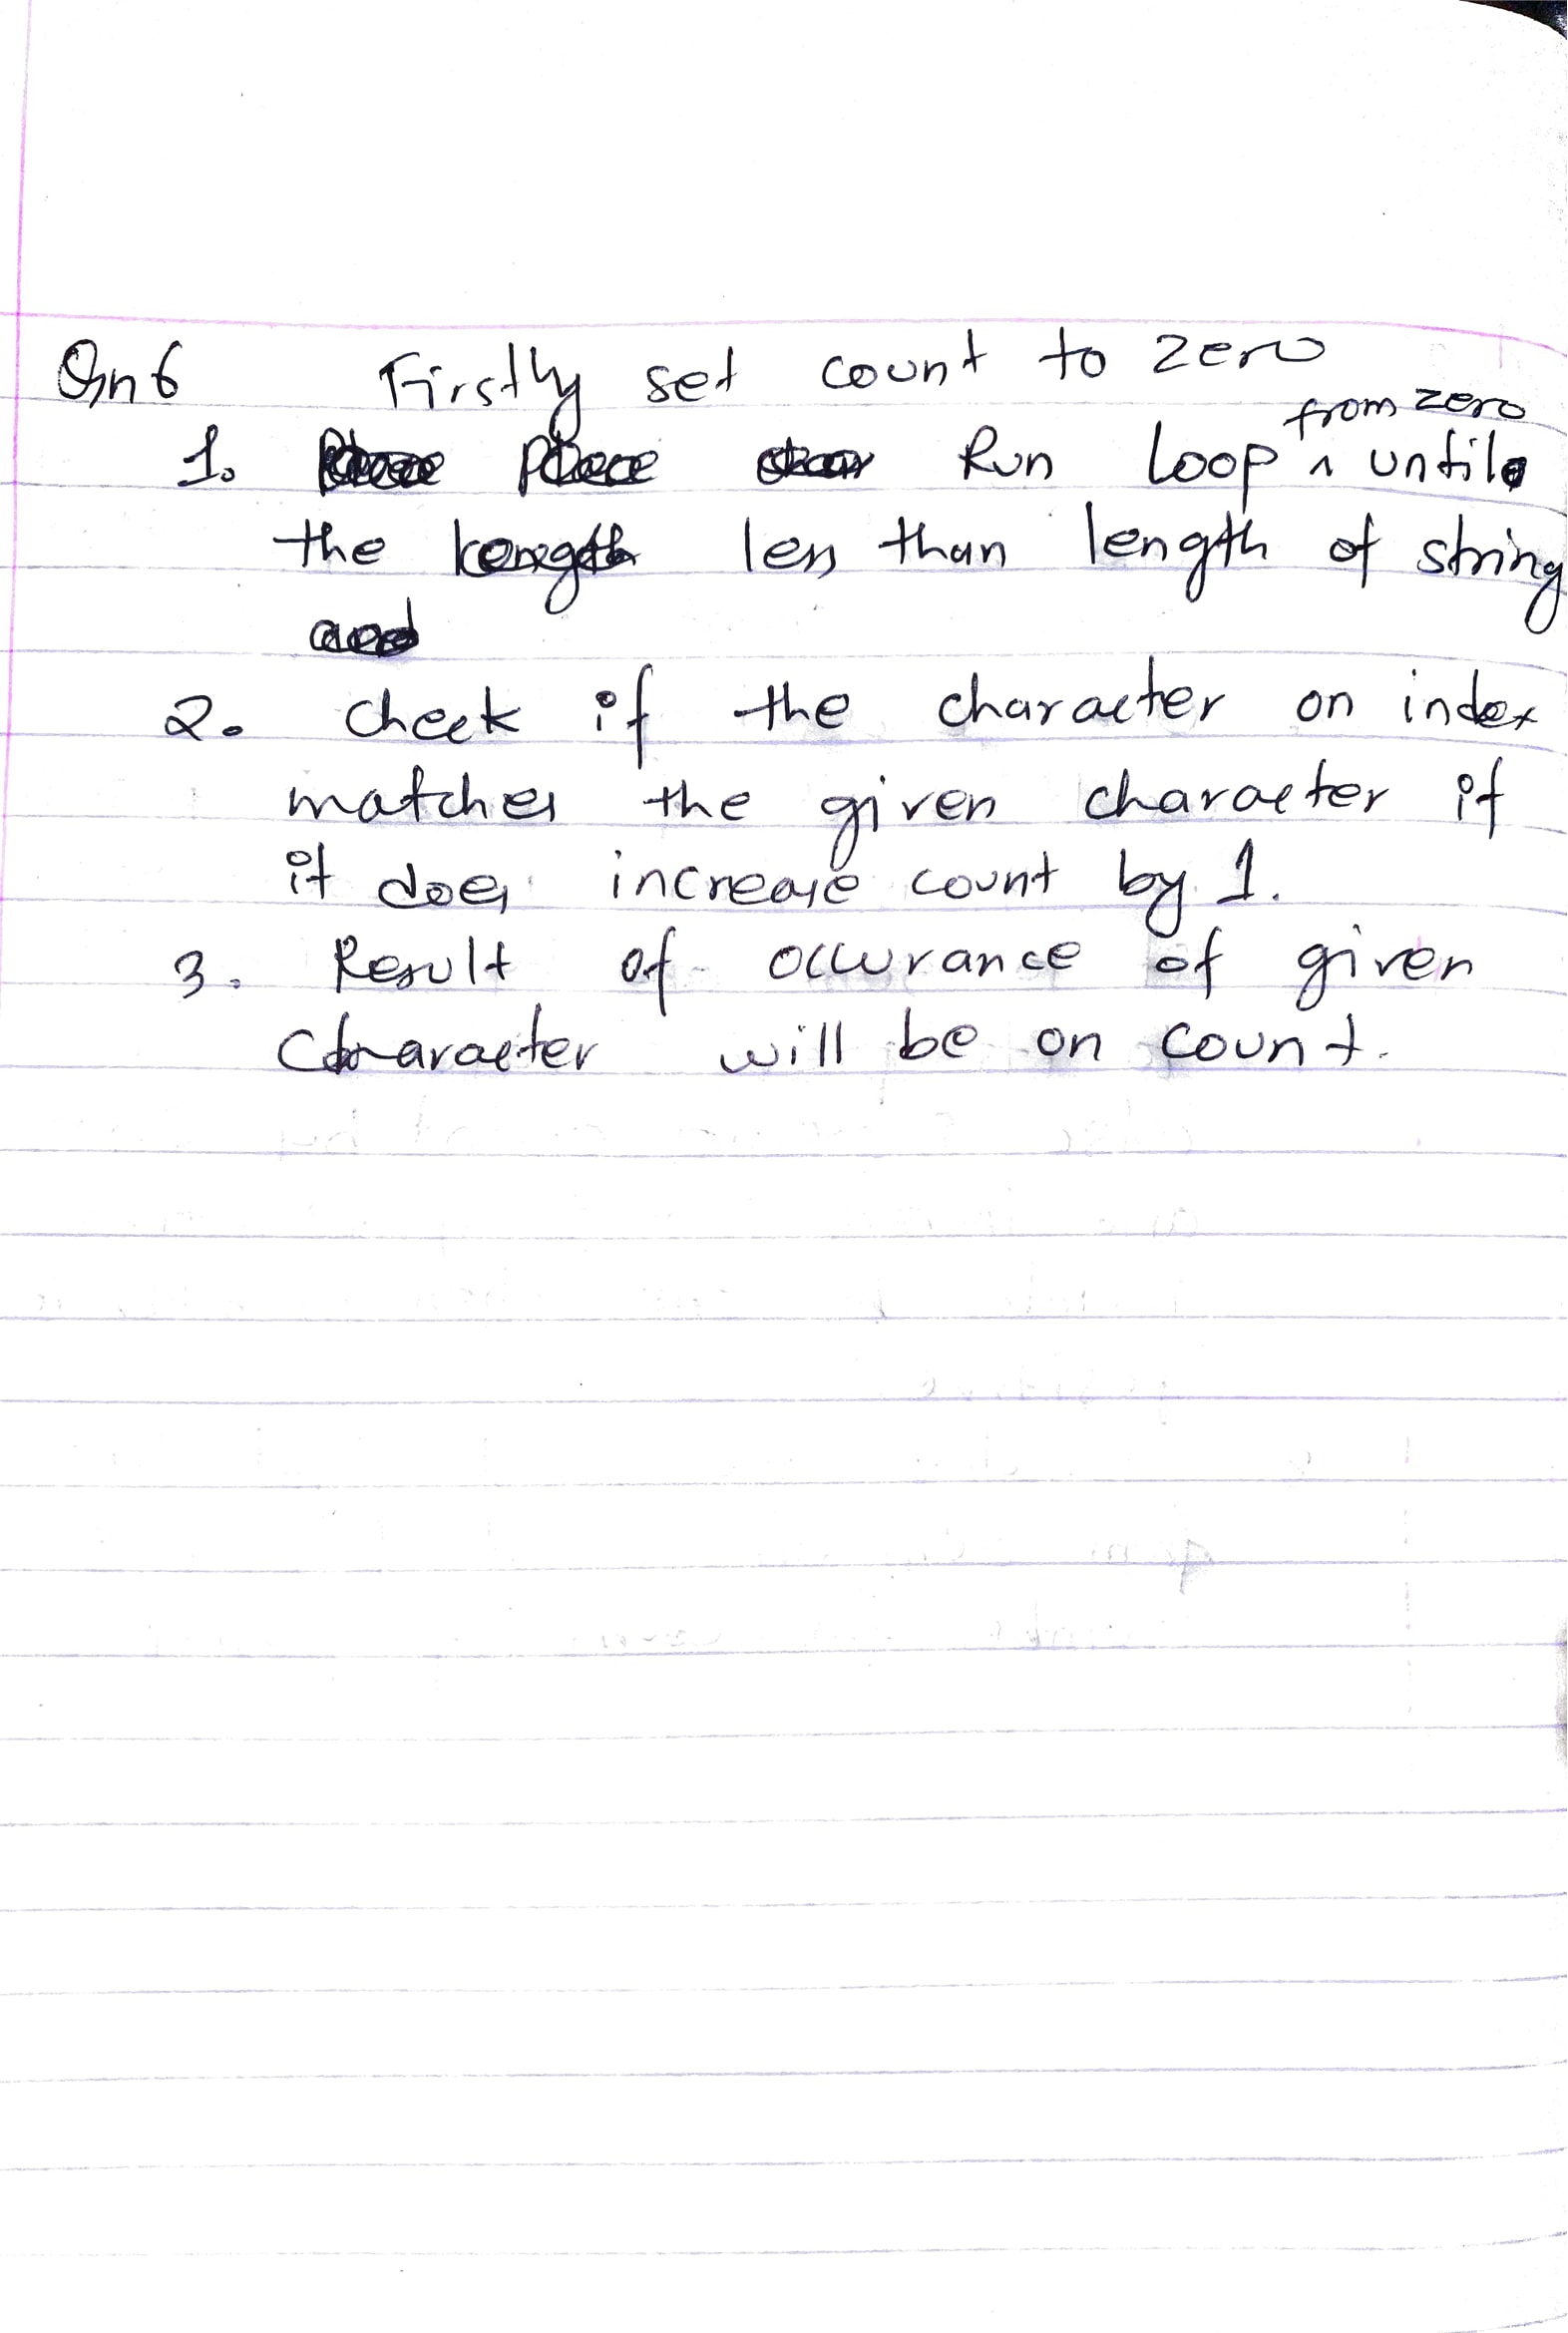 Qn6 Firstly set count to zero
from zero
1. Run Loop ^ until
the less than length of string
2. check if the character on index
matches the given character if
it does increase count by 1.
3. Result of occurance of given
Character will be on count.